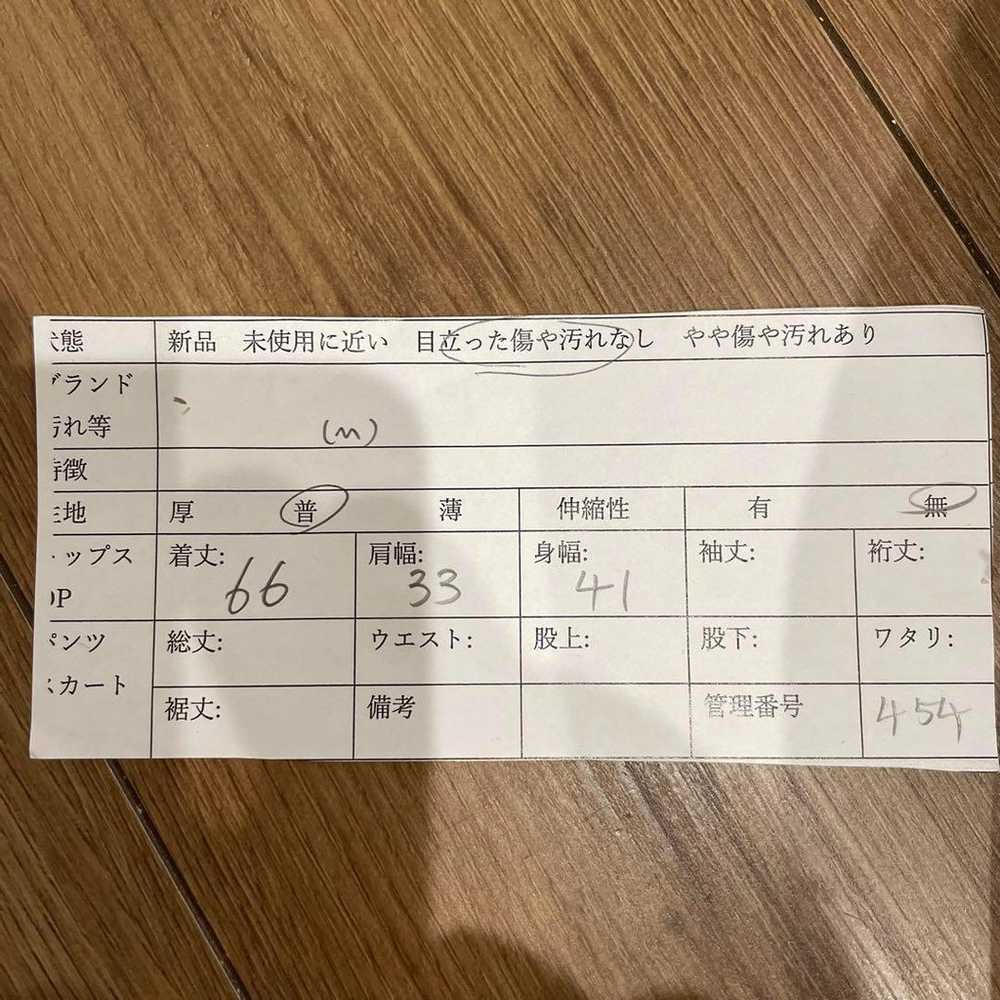 態 新品 未使用に近い 目立った傷や汚れなし やや傷や汚れあり
ランド
れ等 (M)
徴
地 厚 普 薄 伸縮性 有 無
ップス 着丈: 66 肩幅: 33 身幅: 41 袖丈: 裄丈:
OP
ンツ 総丈: ウエスト: 股上: 股下: ワタリ:
カート
裾丈: 備考 管理番号 454